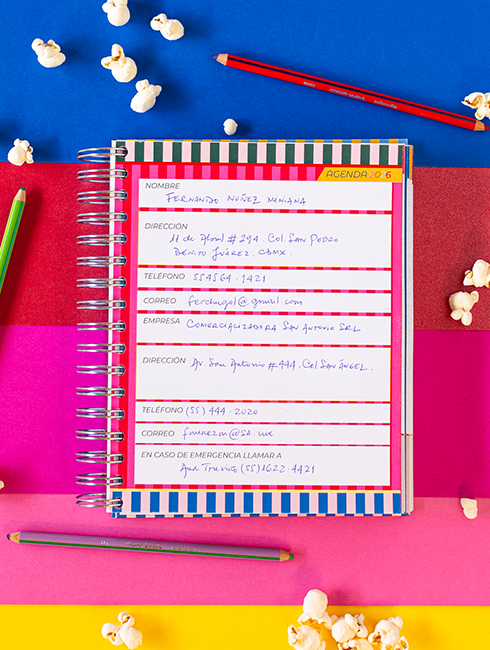 AGENDA 2026
NOMBRE
FERNANDO NUÑEZ MINIANA
DIRECCIÓN
11 de Abril # 294 Col. SAN PEDRO
BENITO JUÁREZ, CDMX.
TELÉFONO 554564 - 1421
CORREO ferchugol@gmail.com
EMPRESA COMERCIALIZADORA SAN ANTONIO SRL
DIRECCIÓN Av. San Antonio # 444. Col SAN ÁNGEL.
TELÉFONO (55) 444 - 2020
CORREO fnunezm@SA.mx
EN CASO DE EMERGENCIA LLAMAR A
Ana Treviño (55) 1622 - 4421